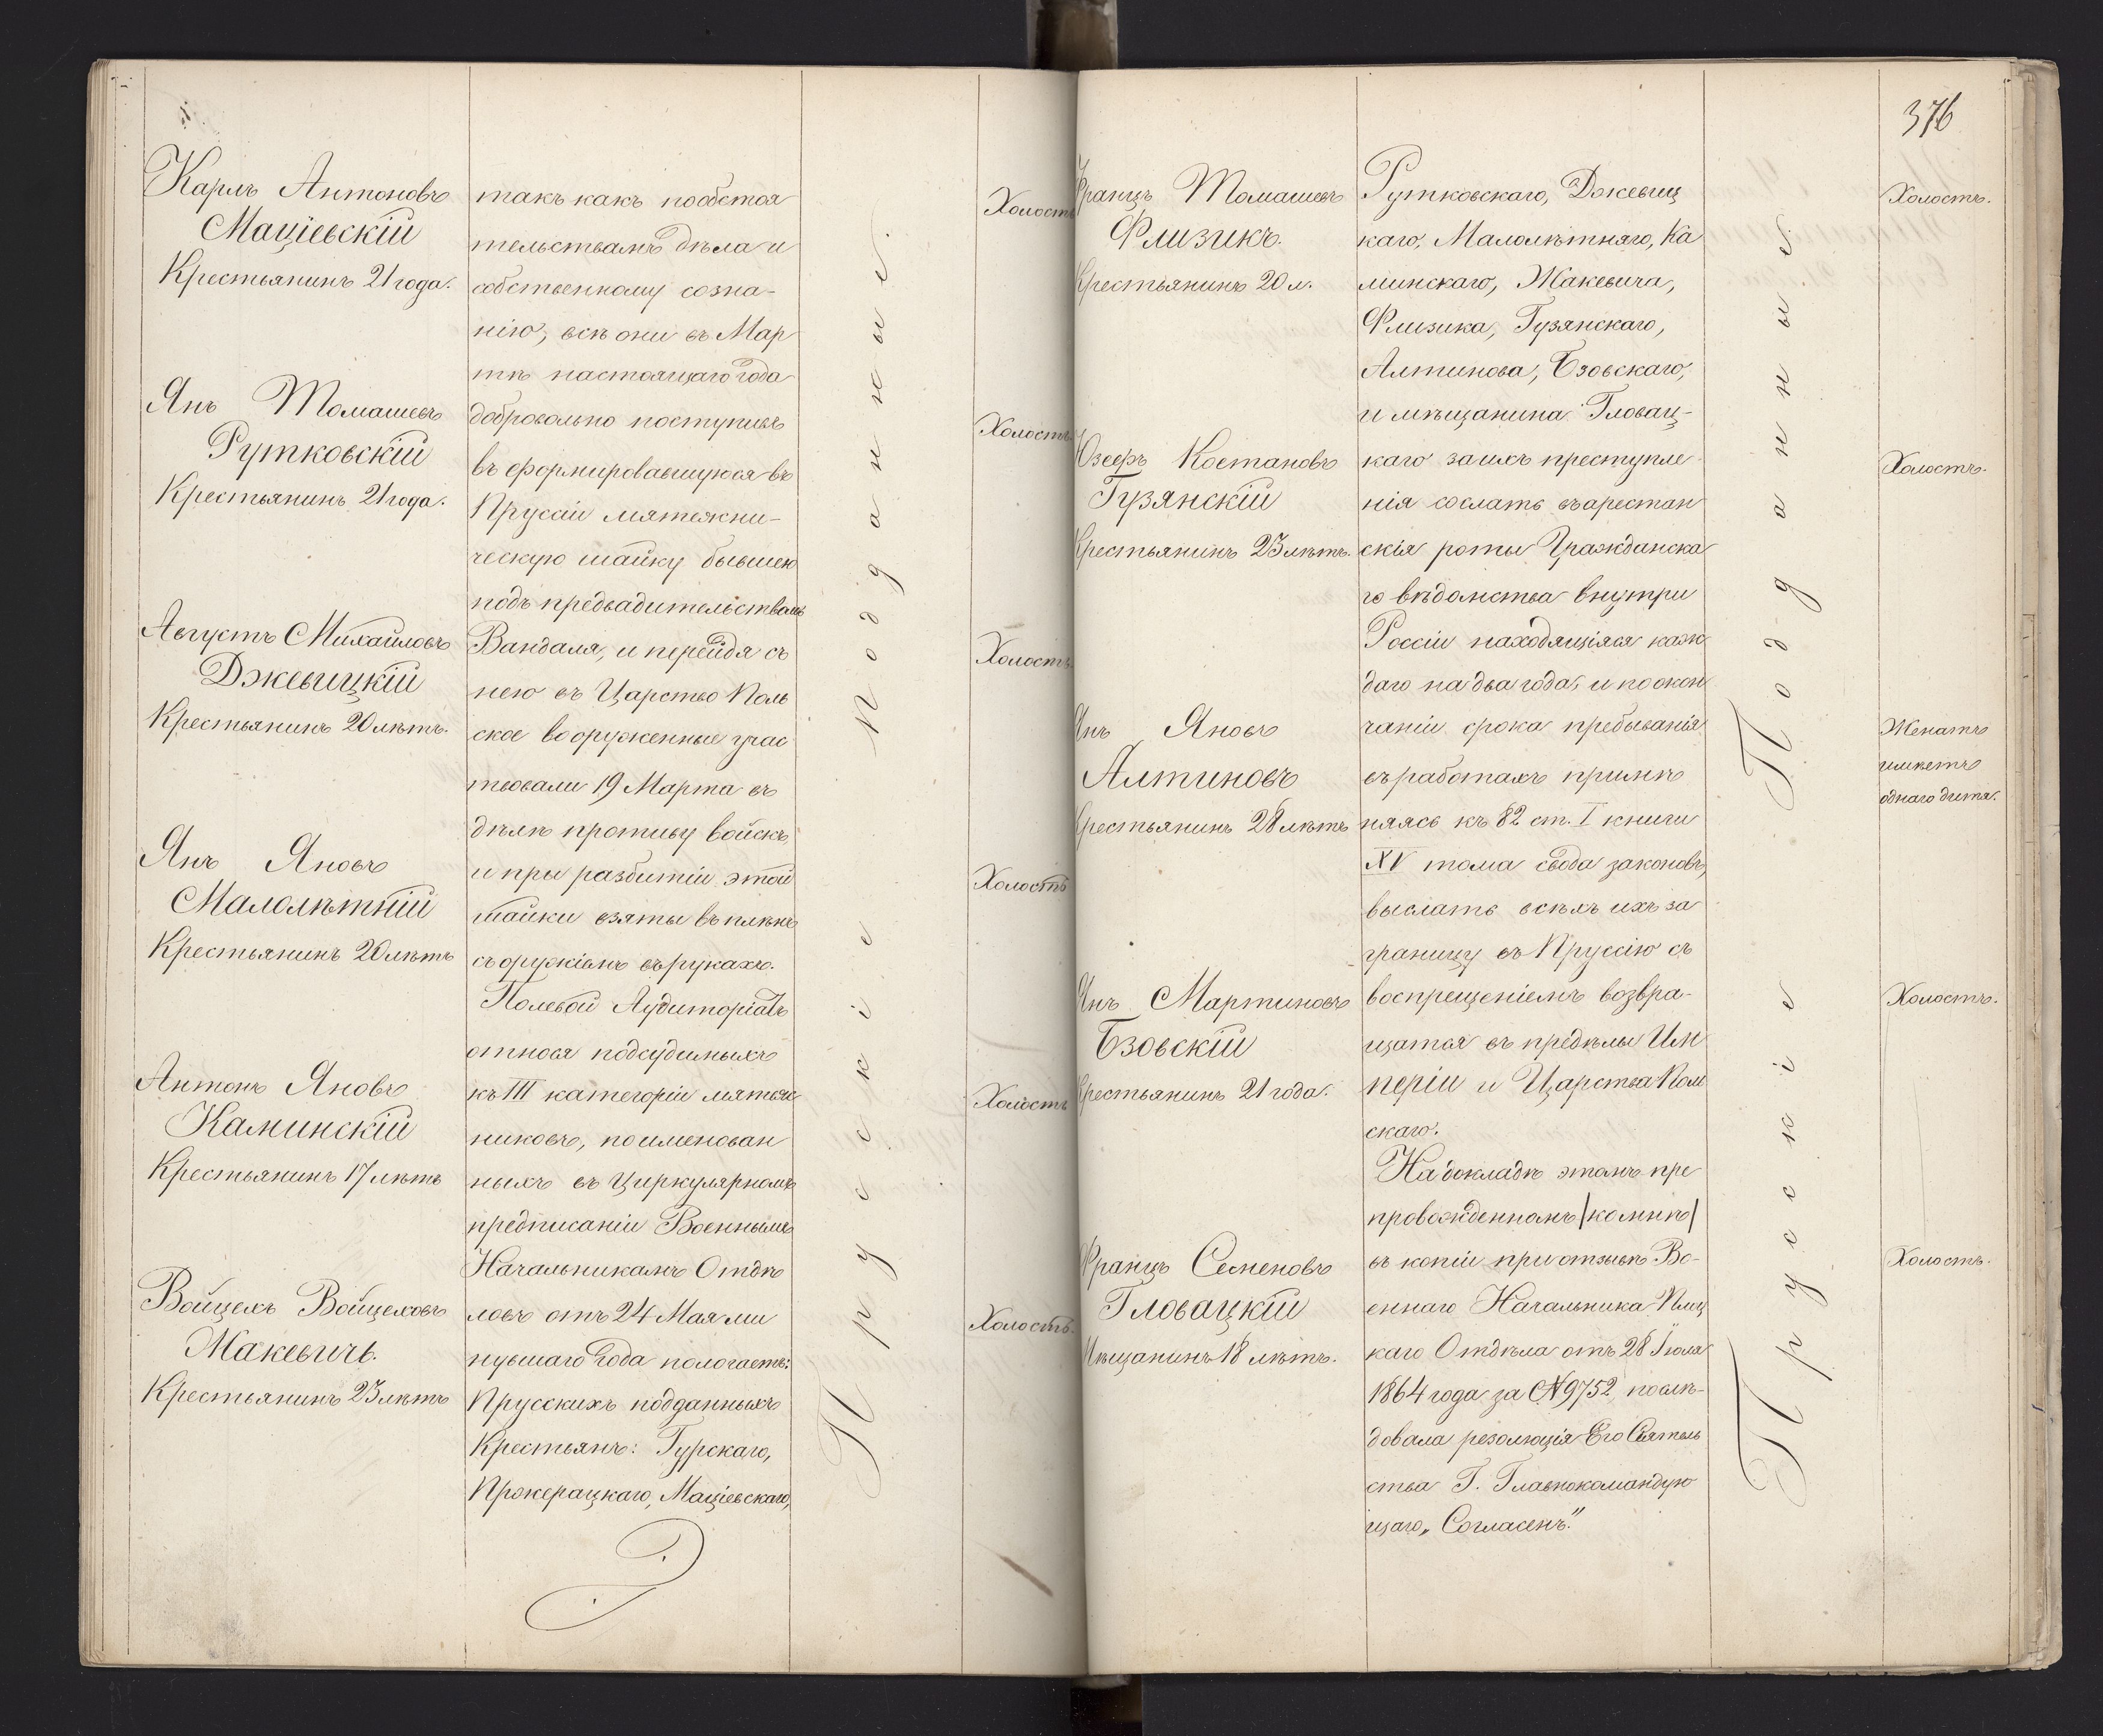 Карлъ Антоновъ
Маціевскій
Крестьянинъ 21 года.
Янъ Томашевъ
Рутковскій
Крестьянинъ 21 года.
Августъ Михайловъ
Джевицкій
Крестьянинъ 20 лѣтъ.
Янъ Яновъ
Малолѣтній
Крестьянинъ 20 лѣтъ
Антонъ Яновъ
Каминскій
Крестьянинъ 17 лѣтъ
Войцехъ Войцеховъ
Жакевичъ.
Крестьянинъ 23 лѣтъ
такъ какъ по обстоя
тельствамъ дѣла и
собственному созна-
нію, всѣ они въ Мар
тѣ настоящаго года
добровольно поступивъ
въ формировавшуюся въ
Прусаіи мятежни-
ческую шайку бывшею
подъ предвадительствомъ
Вандаля, и перейдя съ
нею въ Царство Поль
ское вооруженные учас
твовали 19 Марта въ
дѣлѣ противу войскъ,
и при разбитіи этой
шайки взяты въ плѣнъ
съ оружіемъ въ рукахъ.
Полевой Аудиторіатъ
относя подсудимыхъ
къ III категоріи мятеж
никовъ, поименован
ныхъ въ Циркулярномъ
предписаніи Военнымъ
Начальникамъ Отдѣ
ловъ отъ 24 Мая ми
нувшаго года пологаетъ:
Прусскихъ подданныхъ
Крестьянъ: Гурскаго,
Пржерацкаго, Маціевскаго,
Прусскіе Подданные.
Холостъ
Холостъ.
Холостъ.
Холостъ
Холостъ
Холостъ.
376
Францъ Томашевъ
Флизикъ.
Крестьянинъ 20 л.
Юзефъ Костановъ
Гузянскій
Крестьянинъ 23 лѣтъ.
Янъ Яновъ
Алтиновъ
Крестьянинъ 28 лѣтъ
Янъ Мартиновъ
Бзовскій
Крестьянинъ 21 года.
Францъ Семеновъ
Гловацкій
Мѣщанинъ 18 лѣтъ.
Рутковскаго, Джевиц
каго, Малолѣтняго, Ка
минскаго, Жакевича,
Флизика, Гузянскаго,
Алтинова, Бзовскаго,
и мѣщанина Гловац-
каго за ихъ преступле
нія сослать въ арестан
скія роты Гражданска
го вѣдомства внутри
Россіи находящіяся каж
даго на два года, и по окон
чаніи срока пребыванія
въ работахъ примѣ
няясь къ 82 ст. I книги
XV тома свода законовъ,
выслать всѣхъ ихъ за
границу въ Пруссію съ
воспрещеніемъ возвра-
щатся въ предѣлы Им
періи и Царства Поль
скаго.
На докладѣ этомъ пре
провожденномъ /ко мнѣ/
въ копіи при отзывѣ Во-
еннаго Начальника Плоц
каго Отдѣла отъ 28 Іюля
1864 года за № 9752, послѣ-
довала резолюція Его Сіятель
ства Г. Главнокомандую
щаго „Согласенъ."
Прусскіе Подданные.
Холостъ.
Холостъ.
Женатъ
имѣетъ
однаго дитя.
Холостъ.
Холостъ.